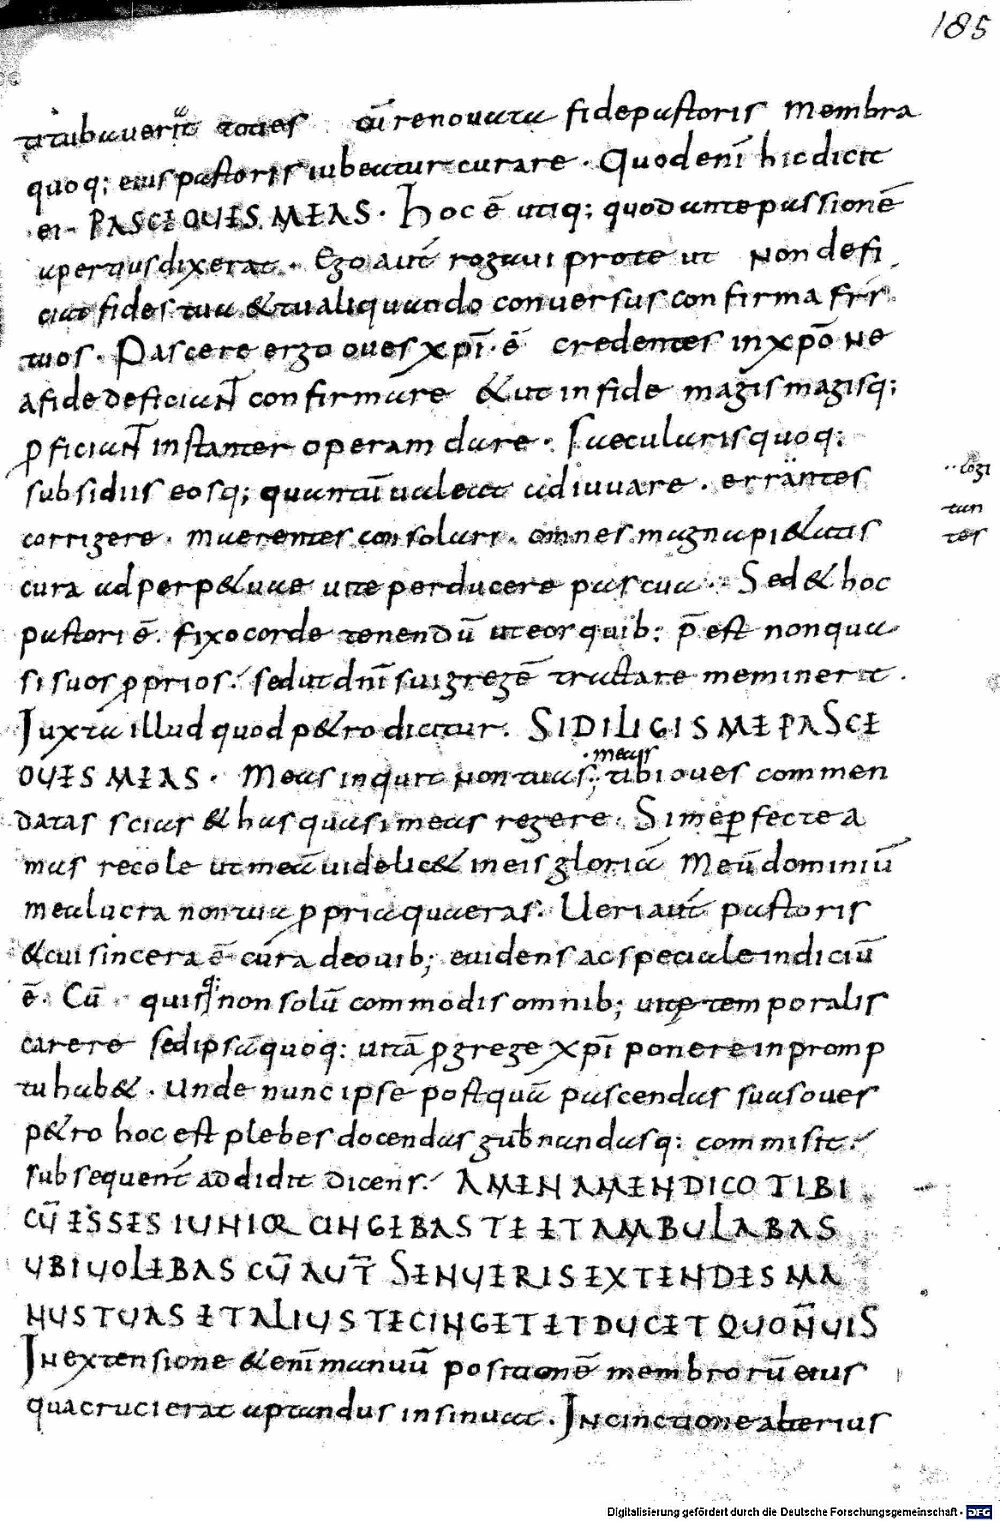 185
titubauerit toties cū renouata fide pastoris membra
quoq; eius pastoris iubeatur curare. Quod eni hic dicit
ei. PASCE OUES MEAS. Hoc ē utiq; quod ante passionē
apertius dixerat. Ego aut rogaui pro te ut non defi
ciat fides tua & tu aliquando conuersus confirma frr
tuos. Pascere ergo oues xpī. ē credentes in xpō ne
a fide deficiant confirmare & ut in fide magis magisq;
pficiant instanter operam dare. Saecularis quoq:
subsidiis eosq; quantū ualeat adiuuare. errantes
corrigere. maerentes consolari. omnes magna pi&atis
cura ad perp&uae uite perducere pascua. Sed & hoc
pastori ē. fixo corde tenendū ut eos quib: p̄est non qua
si suos pprios. sed ut dnī sui gregē tractare meminerit.
Juxta illud quod p&ro dicitur. SI DILIGIS ME PASCE
OUES MEAS. Meas inquit non tuas; meas tibi oues commen
datas scias & has quasi meas regere. Si me pfecte a
mas recole ut meā uidelic& in eis gloriā meū dominiū
mea lucra non tua ppria quaeras. Ueri aut pastoris
& cui sincera ē cura de ouib; euidens ac speciale indiciū
ē. Cū quisq; non solū commodis omnib; uitę temporalis
carere sed ipsā quoq: uitā p grege xpī ponere in promp
tu hab&. Unde nunc ipse postquā pascendas suas oues
p&ro hoc est plebes docendas gubnandasq: commisit.
subsequent addidit dicens. AMEN AMEN DICO TIBI
CŪ ESSES IUNIOR CINGEBAS TE ET AMBULABAS
UBI UOLEBAS CŪ AUT SENUERIS EXTENDES MA
NUS TUAS ET ALIUS TE CINGET ET DUCET QUO N UIS
In extensione & eni manuū positionē membrorū eius
qua cruci erat aptandus insinuat. In cinctione alterius
cogi
tan
tes
Digitalisierung gefördert durch die Deutsche Forschungsgemeinschaft - DFG